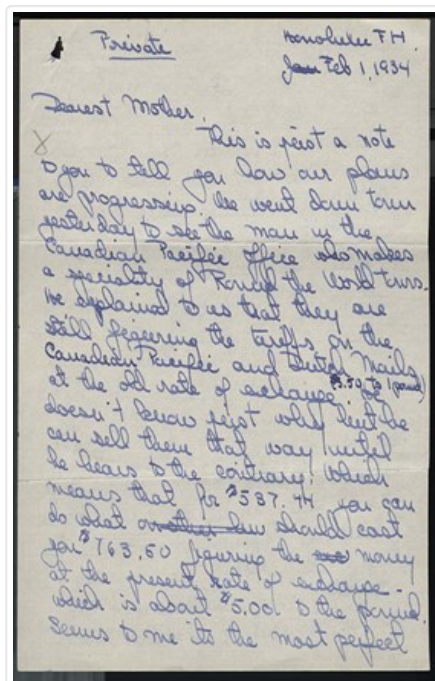 Private
Honolulu T.H.
Feb 1, 1934
Dearest Mother,
This is just a note
to you to tell you how our plans
are progressing. We went down town
yesterday to see the man in the
Canadian Pacific office who makes
a speciality of Round the World tours.
He explained to us that they are
still figuring the tariffs on the
Canadian Pacific and Dutch Mails
at the old rate of exchange $3.50 to 1 pound) He
doesn't know just why but he
can sell them that way until
he hears to the contrary; which
means that for $537.44 you can
do what should cost
you $763.50 figuring the money
at the present rate of exchange -
which is about $5.00 to the pound.
Seems to me its the most perfect